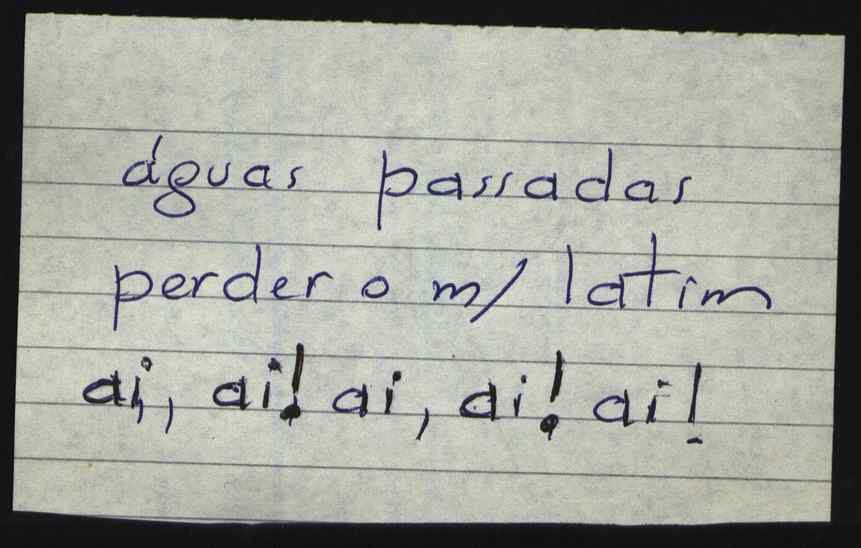 águas passadas
perder o m/ latim
ai, ai! ai, ai! ai!